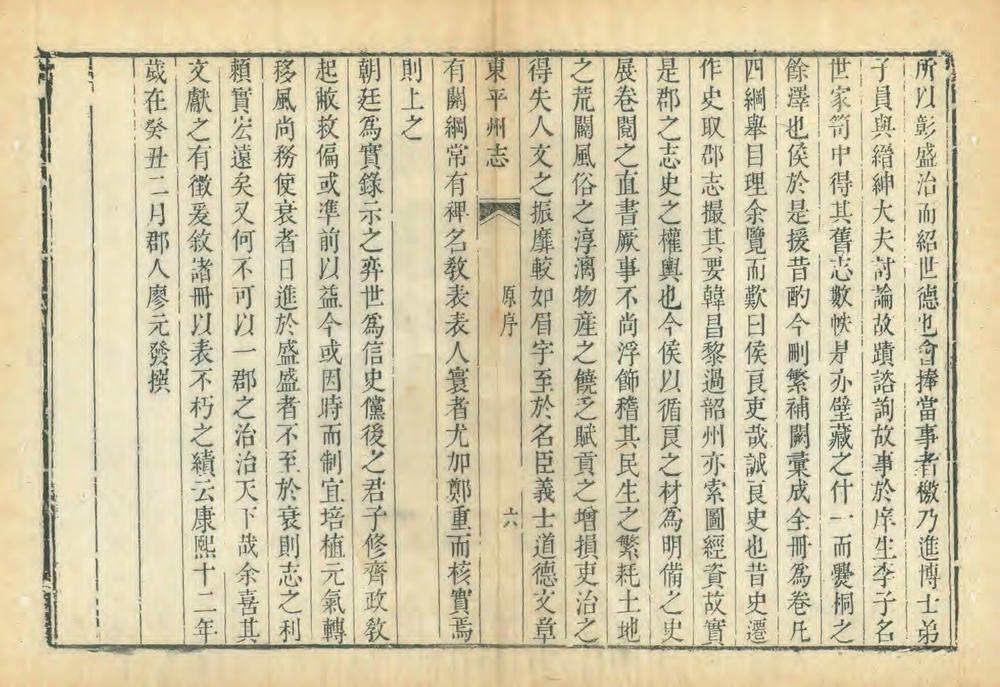 所以彰盛治而紹世德也會捧當事者檄乃進博士弟
子員與縉紳大夫討論故蹟諮詢故事於庠生李子名
世家笥中得其舊志數帙是亦壁藏之什一而爨桐之
餘澤也侯於是援昔酌今刪繁補闕彙成全冊為卷凡
四綱舉目理余覽而歎曰侯良吏哉誠良史也昔史遷
作史取郡志撮其要韓昌黎過韶州亦索圖經資故實
是郡之志史之權輿也今侯以循良之材為明備之史
展卷閱之直書厥事不尚浮飾稽其民生之繁耗土地
之荒闢風俗之淳漓物產之饒乏賦貢之增損吏治之
得失人文之振靡較如眉宇至於名臣義士道德文章
東平州志
原序
六
有關綱常有裨名教表表人寰者尤加鄭重而核實焉
則上之
朝廷為實錄示之弈世為信史儻後之君子修齊政教
起敝救偏或準前以益今或因時而制宜培植元氣轉
移風尚務使衰者日進於盛盛者不至於衰則志之利
賴實宏遠矣又何不可以一郡之治治天下哉余喜其
文獻之有徵爰敘諸冊以表不朽之績云康熙十二年
歲在癸丑二月郡人廖元發撰